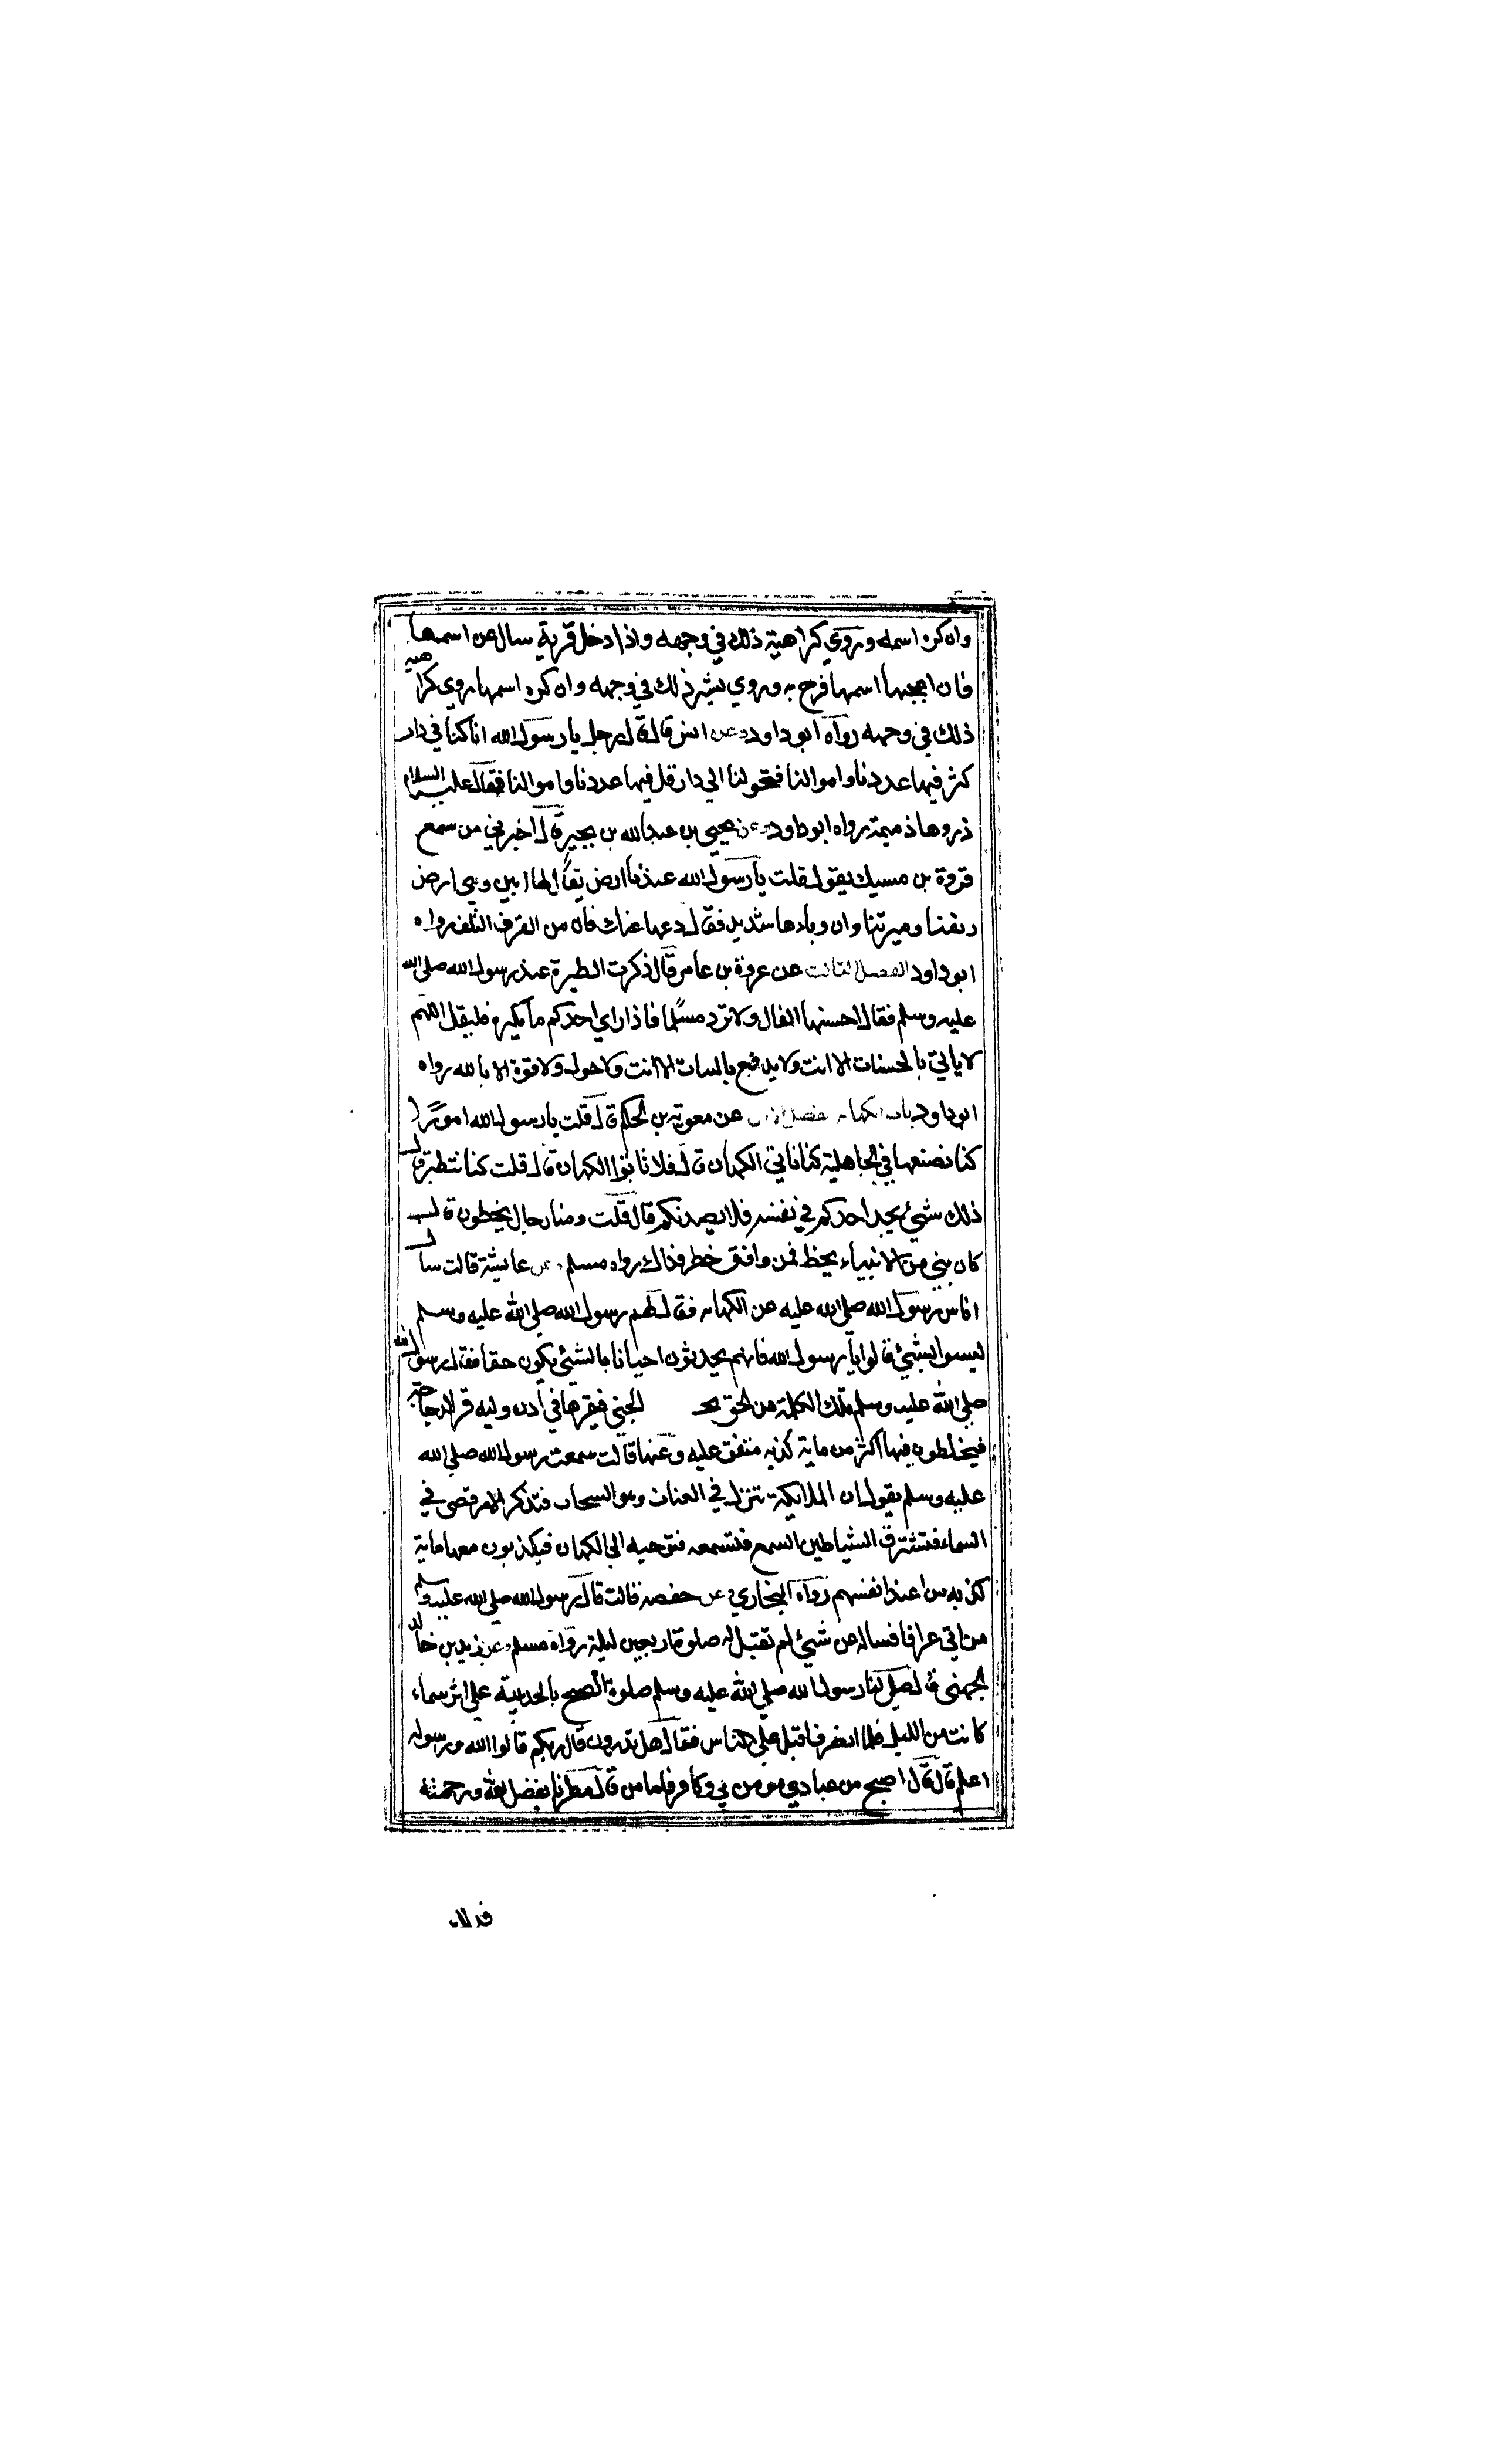 وان كره اسمه وروي كراهية ذلك في وجهه واذا دخل قرية سال عن اسمها
فان اعجبها اسمها فرح به وروي بشر ذلك في وجهه وان كره اسمها روي كراهية
ذلك في وجهه رواه ابو داود وعن انس قال قال رجل يا رسول الله انا كنا في دار
كثر فيها عددنا واموالنا فتحولنا الي دار قل فيها عددنا واموالنا فقال عليه السلام
ذروها ذميمة رواه ابو داود وعن يحيي بن عبد الله بن بجير قال اخبرني من سمع
فروة بن مسيك يقول قلت يا رسول الله عندنا ارض يقال لها ابين وهي ارض
ريفنا وميرتنا وان وباءها شديد فقال دعها عنك فان من القرف التلف رواه
ابو داود الفصل الثالث عن عروة بن عامر قال ذكرت الطيرة عند رسول الله صلي الله
عليه وسلم فقال احسنها الفال ولا ترد مسلما فاذا راي احدكم ما يكره فليقل اللهم
لا ياتي بالحسنات الا انت ولا يدفع بالسات الا انت ولا حول ولا قوة الا بالله رواه
ابو داود باب الكهانه الفصل الاول عن معوية بن الحكم قال قلت يا رسول الله امورا
كنا نصنعها في الجاهلية كنا ناتي الكهان قال فلا تاتوا الكهان قال قلت كنا نتطير قال
ذلك شيئ يجد احدكم في نفسه فلا يصدنكم قال قلت ومنا رجال يخطون قال
كان نبي من الانبياء يخط فمن وافق خطه فذاك رواه مسلم وعن عايشة قالت سال
اناس رسول الله صلي الله عليه عن الكهانه فقال لهم رسول الله صلي الله عليه وسلم
ليسوا بشيئ قالوا يا رسول الله فانهم يحدثون احيانا بالشئي يكون حقا فقال رسول الله
صلي الله عليه وسلم تلك الكلمة من الحق يحـ الجني فيقرها في اذن وليه قر الدجاجة
فيخلطون فيها اكثر من ماية كذبه متفق عليه وعنها قالت سمعت رسول الله صلي الله
عليه وسلم يقول ان الملايكة تنزل في العنان وهو السحاب فتذكر الامر قضي في
السماء فتسترق الشياطين السمع فتسمعه فتوحيه الي الكهان فيكذبون معها ماية
كذبه من عند انفسهم رواه البخاري وعن حفصه قالت قال رسول الله صلي الله عليه وسلم
من اتي عرافا فساله عن شيئ لم تقبل له صلوة اربعين ليلة رواه مسلم وعن زيد بن خالد
الجهني قال صلي لنا رسول الله صلي الله عليه وسلم صلوة الصبح بالحديبية علي اثر سماء
كانت من الليل فلما انصرف اقبل علي الناس فقال هل تدرون قال ربكم قالوا الله ورسوله
اعلم قال قال اصبح من عبادي مومن بي وكافر فاما من قال مطرنا بفضل الله ورحمته